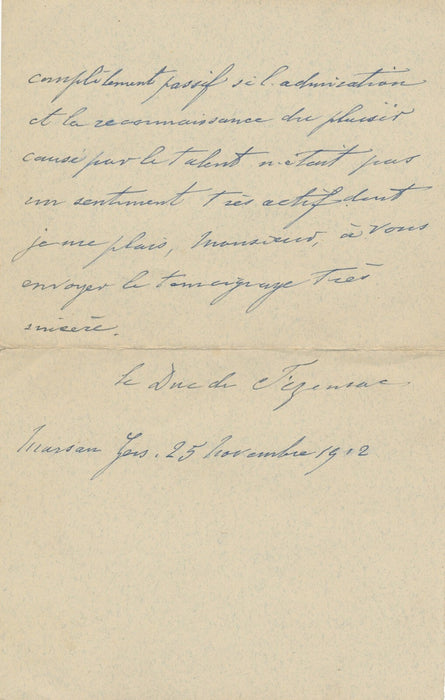 complètement passif si l'admiration
et la reconnaissance du plaisir
causé par le talent n'était pas
un sentiment très actif dont
je me plais, Monsieur, à vous
envoyer le témoignage très
sincère.
le Duc de Fezensac
Marsan Gers. 25 Novembre 1912